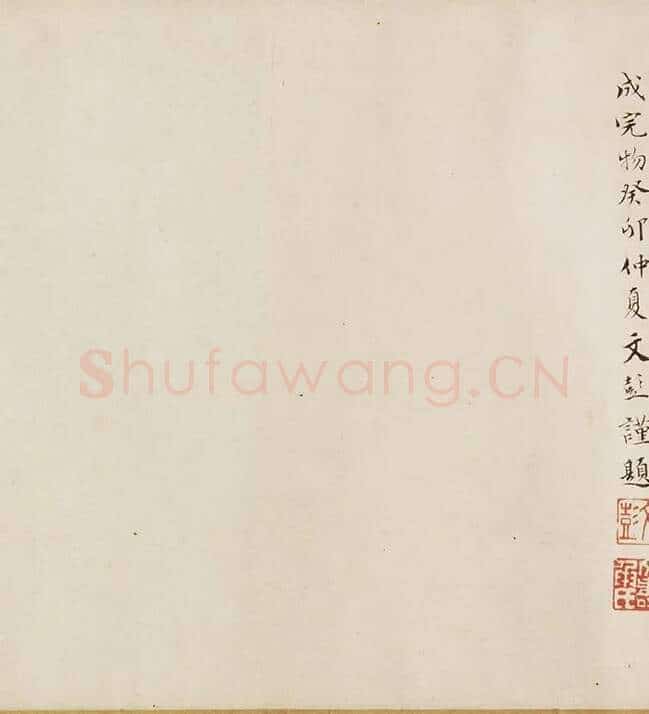 成完物癸卯仲夏文彭謹題
Shufawang.CN
文彭